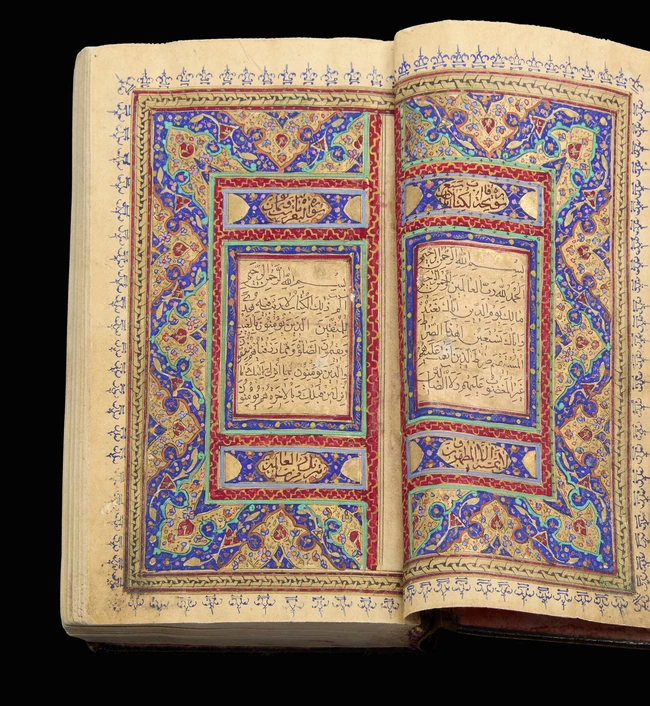 فاتحة الكتاب
بسم الله الرحمن الرحيم
الحمد لله رب العالمين الرحمن الرحيم
مالك يوم الدين اياك نعبد
واياك نستعين اهدنا الصراط
المستقيم صراط الذين انعمت عليهم
غير المغضوب عليهم ولا الضالين
لا يمسه الا المطهرون
سورة البقرة
بسم الله الرحمن الرحيم
الم ذلك الكتاب لا ريب فيه هدى
للمتقين الذين يؤمنون بالغيب
ويقيمون الصلوة ومما رزقناهم ينفقون
والذين يؤمنون بما انزل اليك وما
انزل من قبلك وبالاخرة هم يوقنون
تنزيل من رب العالمين